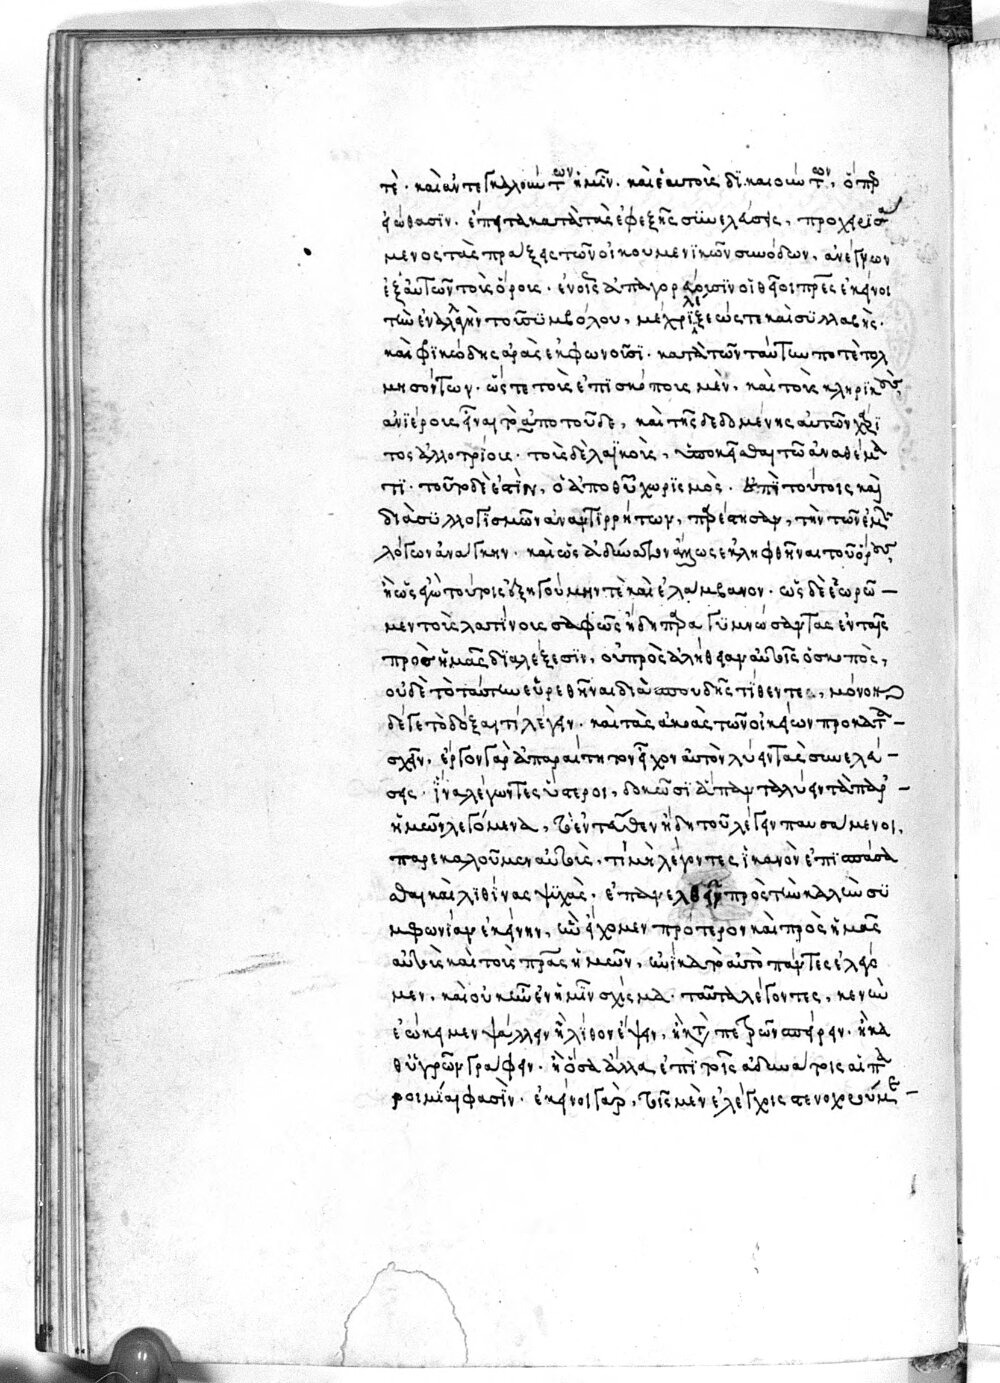 τὲ· καὶ ἀντεγκαλούντων ἡμῖν· καὶ ἑαυτοὺς δικαιούντων, ὅπερ
εἰώθασιν· ἔπειτα κατὰ τὰς ἐφεξῆς συνελεύσεις, προχειρισά
μενος τὰς πράξεις τῶν οἰκουμενικῶν συνόδων, ἀνέγνων
ἐξ αὐτῶν τοὺς ὅρους· ἐν οἷς ἀπαγορεύουσιν οἱ θεῖοι πατέρες ἐκεῖνοι
τὴν ἐναλλαγὴν τοῦ συμβόλου, μέχρι λέξεώς τε καὶ συλλαβῆς·
καὶ φρικώδεις ἀρὰς ἐκφωνοῦσι· κατὰ τῶν ταύτην ποτὲ τολ
μησόντων· ὥστε τοὺς ἐπισκόπους μὲν, καὶ τοὺς κληρικοὺς,
ἀνιέρους εἶναι τὸ ἀπὸ τοῦδε, καὶ τῆς δεδομένης αὐτῶν χάρι
τος ἀλλοτρίους· τοὺς δὲ λαϊκοὺς, ὑποκεῖσθαι τῷ ἀναθέμα
τι· τοῦτο δέ ἐστιν, ὁ ἀπὸ θεοῦ χωρισμός· ἐπὶ τούτοις καὶ
διὰ συλλογισμῶν ἀναντιρρήτων, παρέστησαν, τὴν τῶν ἐμῶν
λόγων ἀνάγκην· καὶ ὡς ἀδύνατον ἄλλως ἐκληφθῆναι τοὺς ὅρους,
ἢ ὡς ἐγὼ τούτους ἐξηγούμην τὲ καὶ ἐλάμβανον· ὡς δὲ ἑωρῶ
μεν τοὺς λατίνους σαφῶς ἤδη παραγυμνώσαντας ἐν ταῖς
πρὸς ἡμᾶς διαλέξεσιν, οὐ πρὸς ἀλήθειαν αὐτοῖς ὁ σκοπὸς,
οὐδὲ τὸ ταύτην εὑρεθῆναι διὰ σπουδῆς τίθενται, μόνον
δέ γε τὸ δόξαι τὶ λέγειν· καὶ τὰς ἀκοὰς τῶν οἰκείων προκατα
σχεῖν, ἔργον γὰρ ἀπαραίτητον εἶχον αὐτὸν λύειν τὰς συνελεύ
σεις· ἵνα λέγωντες ὕστεροι, δοκῶσι ἅπαντα λύειν τὰ παρ
ἡμῶν λεγόμενα, τὸ ἐντεῦθεν ἤδη τοῦ λέγειν παυσάμενοι,
παρεκαλοῦμεν αὐτοὺς, τί μὴ λέγοντες ἱκανὸν ἐπισπάσα
σθαι καὶ λιθίνας ψυχὰς· ἐπανελθεῖν πρὸς τὴν καλὴν συ
μφωνίαν ἐκείνην, ἣν εἴχομεν πρότερον καὶ πρὸς ἡμᾶς
αὐτοὺς καὶ τοὺς πατέρας ἡμῶν, ἡνίκα τὸ αὐτὸ πάντες ἐλέγο
μεν, καὶ οὐκ ἦν ἐν ἡμῖν σχίσμα· ταῦτα λέγοντες, κενὴν
ἐῴκαμεν ψάλλειν ἢ λίθον ἕψειν, ἢ κατὰ πετρῶν σπείρειν· ἢ κα
θ' ὑγρῶν γράφειν· ἢ ὅσα ἄλλα ἐπὶ τοῖς ἀδυνάτοις αἱ πα
ροιμίαι φασὶν· ἐκεῖνοι γὰρ, τοῖς μὲν ἐλέγχοις στενοχωρούμε